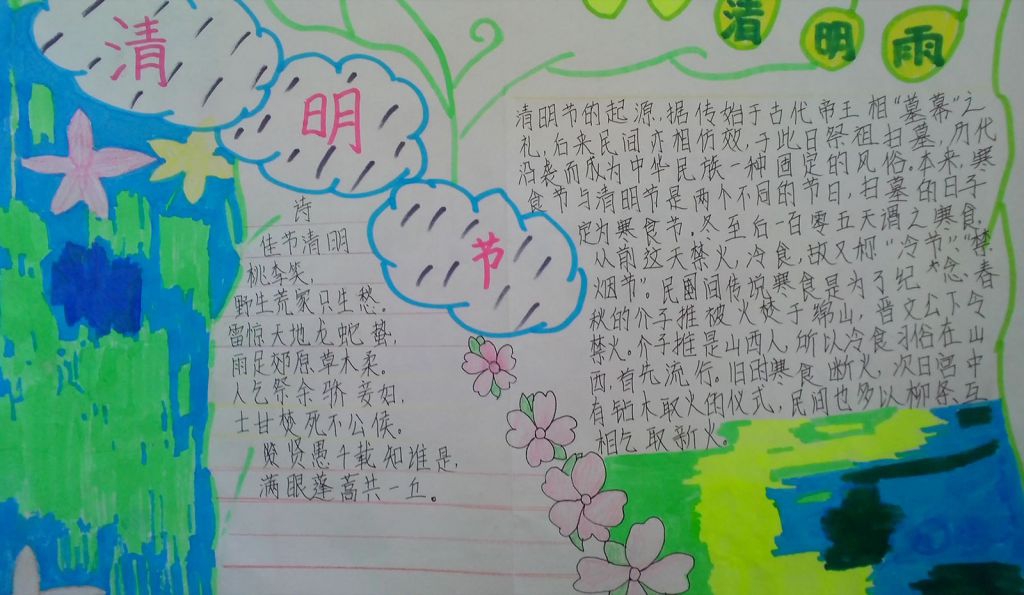 清
明
节
清明雨
诗
佳节清明
桃李笑，
野生荒冢只生愁。
雷惊天地龙蛇蛰，
雨足郊原草木柔。
人乞祭余骄妾妇，
士甘焚死不公侯。
贤愚千载知谁是，
满眼蓬蒿共一丘。
清明节的起源，据传始于古代帝王相"墓幕"之
礼，后来民间亦相仿效，于此日祭祖扫墓，历代
沿袭而成为中华民族一种固定的风俗。本来，寒
食节与清明节是两个不同的节日，扫墓的日子
定为寒食节。冬至后一百零五天谓之寒食。
从前这天禁火，冷食，故又称"冷节""禁
烟节"。民国间传说寒食是为了纪念春
秋的介子推被火焚于绵山，晋文公下令
禁火。介子推是山西人，所以冷食习俗在山
西，首先流行。旧时寒食断火，次日宫中
有钻木取火的仪式，民间也多以柳条互
相乞取新火。